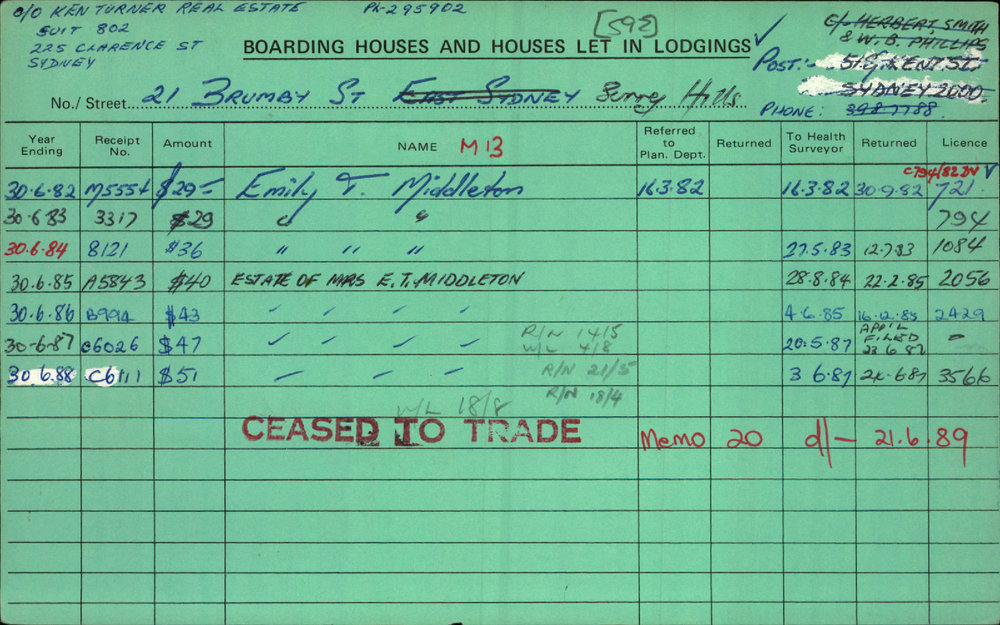 C/O KEN TURNER REAL ESTATE PH-295902
SUIT 802
225 CLARENCE ST
SYDNEY
[592]
C/- HERBERT, SMITH
& W.B. PHILLIPS
BOARDING HOUSES AND HOUSES LET IN LODGINGS
POST:- 51 KENT ST.
SYDNEY 2000.
No./Street 21 BRUMBY ST EAST SYDNEY Surry Hills
PHONE: 398 7788.
Year Ending Receipt No. Amount NAME M 13 Referred to Plan. Dept. Returned To Health Surveyor Returned Licence
C794/82
30.6.82 M5554 $29- Emily T. Middleton 16.3.82 16.3.82 30.9.82 721
30.6.83 3317 $29 " " 794
30.6.84 8121 $36 " " " 27.5.83 12.7.83 1084
30.6.85 A5843 $40 ESTATE OF MRS E.T. MIDDLETON 28.8.84 22.2.85 2056
30.6.86 B994 $43 " " " " 4.6.85 16.12.85 2429
30-6-87 C6026 $47 " " " " R/N 14/5 W/L 4/8 20.5.87 APPL FILED 23.6.87 -
30.6.88 C6111 $51 - - - R/N 21/5 3.6.87 24.6.87 3566
R/N 18/4
W/L 18/8
CEASED TO TRADE Memo 20 d/- 21.6.89